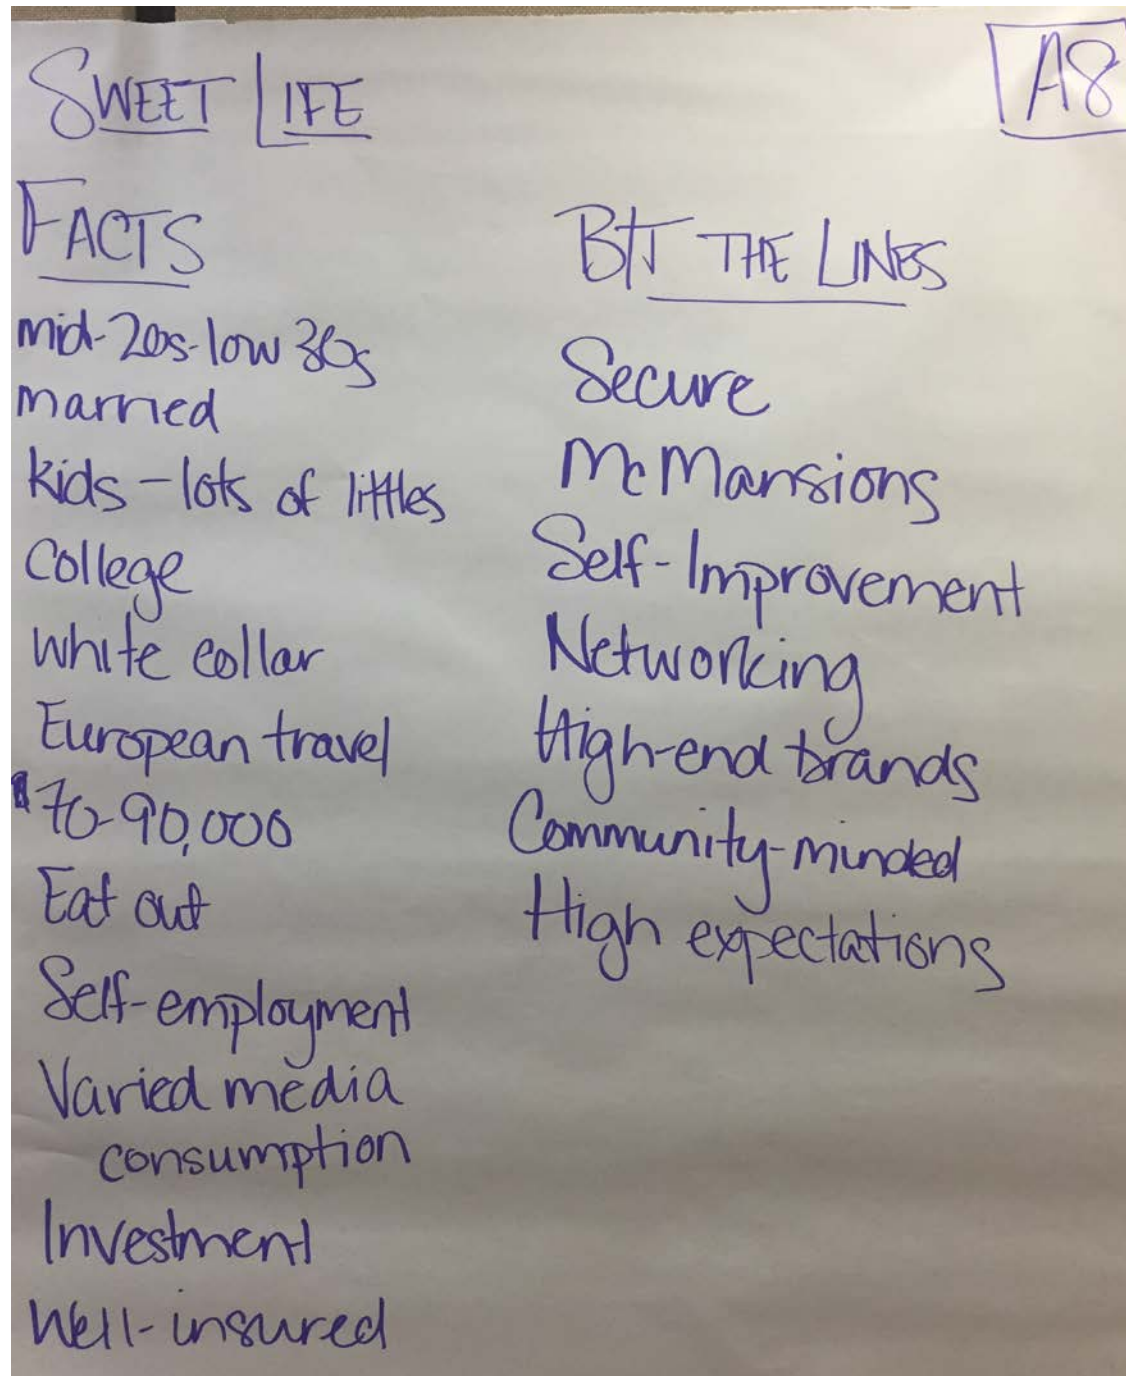 SWEET LIFE
A8
FACTS
mid-20s-low 30s
married
kids - lots of littles
College
white collar
European travel
$70-90,000
Eat out
Self-employment
Varied media
consumption
Investment
Well-insured
BTJ THE LINES
Secure
McMansions
Self-Improvement
Networking
High-end brands
Community-minded
High expectations